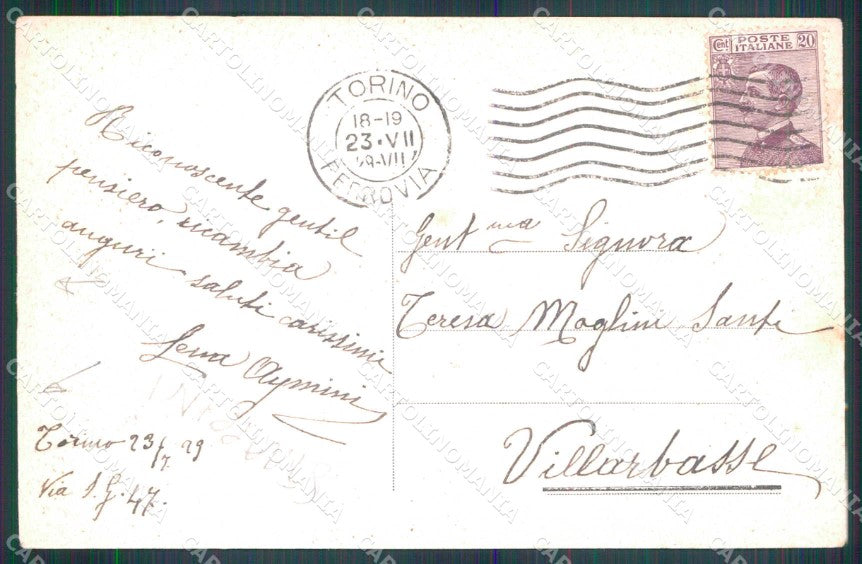 POSTE
ITALIANE
Cent. 20
TORINO
18-19
23·VII
FERROVIA
Riconoscente gentil
pensiero, ricambia
auguri saluti carissimi
Lena Aymini
Torino 23/7 29
Via S. G. 47.
Gent ma Signora
Teresa Moglini Santi
Villarbasse
CARTOLINOMANIA